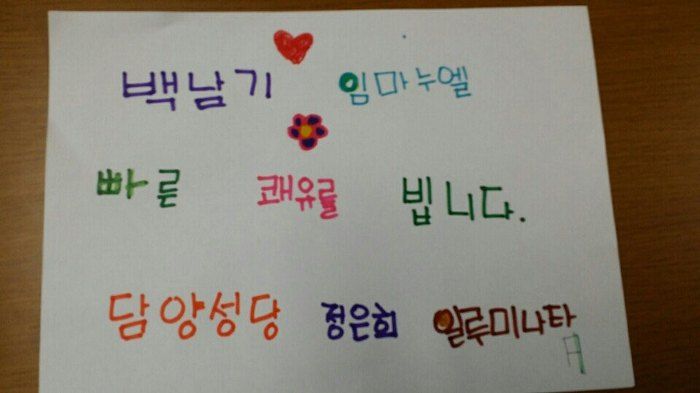 백남기 임마누엘
빠른 쾌유를 빕니다.
담양성당 정은희 일루미나타